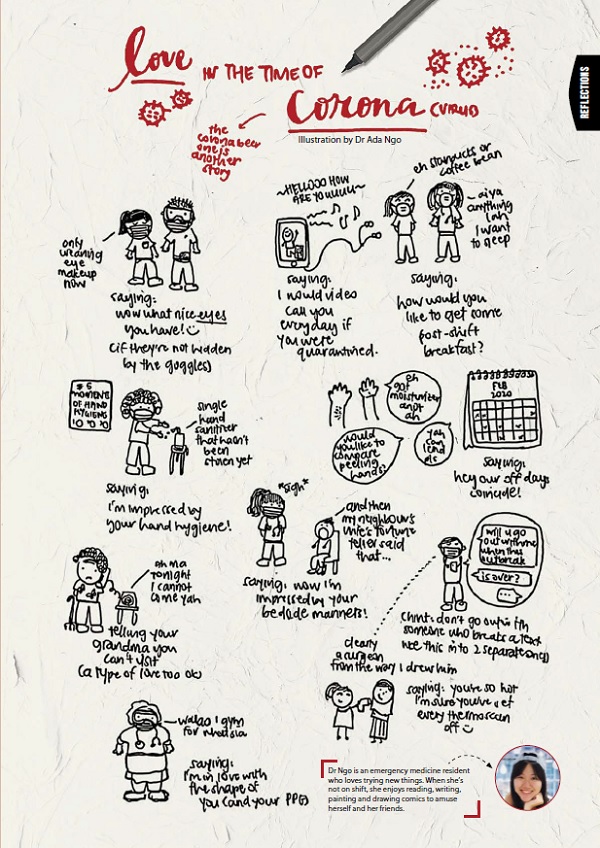 love IN THE TIME OF
Corona (VIRUS)
Illustration by Dr Ada Ngo
REFLECTIONS
the
corona beer
one is
another
story
only
wearing
eye
makeup
now
saying:
wow what nice eyes
you have!
(if they're not hidden
by the goggles)
~HELLOOO HOW
ARE YOUUUUU~
saying:
I would video
call you
everyday if
you were
quarantined.
eh starbucks or
coffee bean
- aiya
anything
lah
I want
to sleep
saying:
how would you
like to get some
post-shift
breakfast?
# 5
MOMENTS
OF HAND
HYGIENE
single
hand
sanitizer
that hasn't
been
stolen yet
saying:
i'm impressed by
your hand hygiene!
eh
got
moisturizer
anot
ah
would
you like to
compare
peeling
hands?
FEB
2020
saying:
hey our off days
coincide!
*sigh*
and then
my neighbour's
wife's fortune
teller said
that...
saying: wow i'm
impressed by your
bedside manners!
will u go
out with me
when this
outbreak
is over?
...
(hint: don't go out with
someone who breaks a text
like this into 2 separate ones)
clearly
a surgeon
from the way I drew him
ah ma
tonight
I cannot
come yah
telling your
grandma you
can't visit
(a type of love too ok)
saying: you're so hot
i'm sure you've set
every thermoscan
off
walao I gym
for what sia
saying:
i'm in love with
the shape of
you (and your PPE)
Dr Ngo is an emergency medicine resident
who loves trying new things. When she's
not on shift, she enjoys reading, writing,
painting and drawing comics to amuse
herself and her friends.